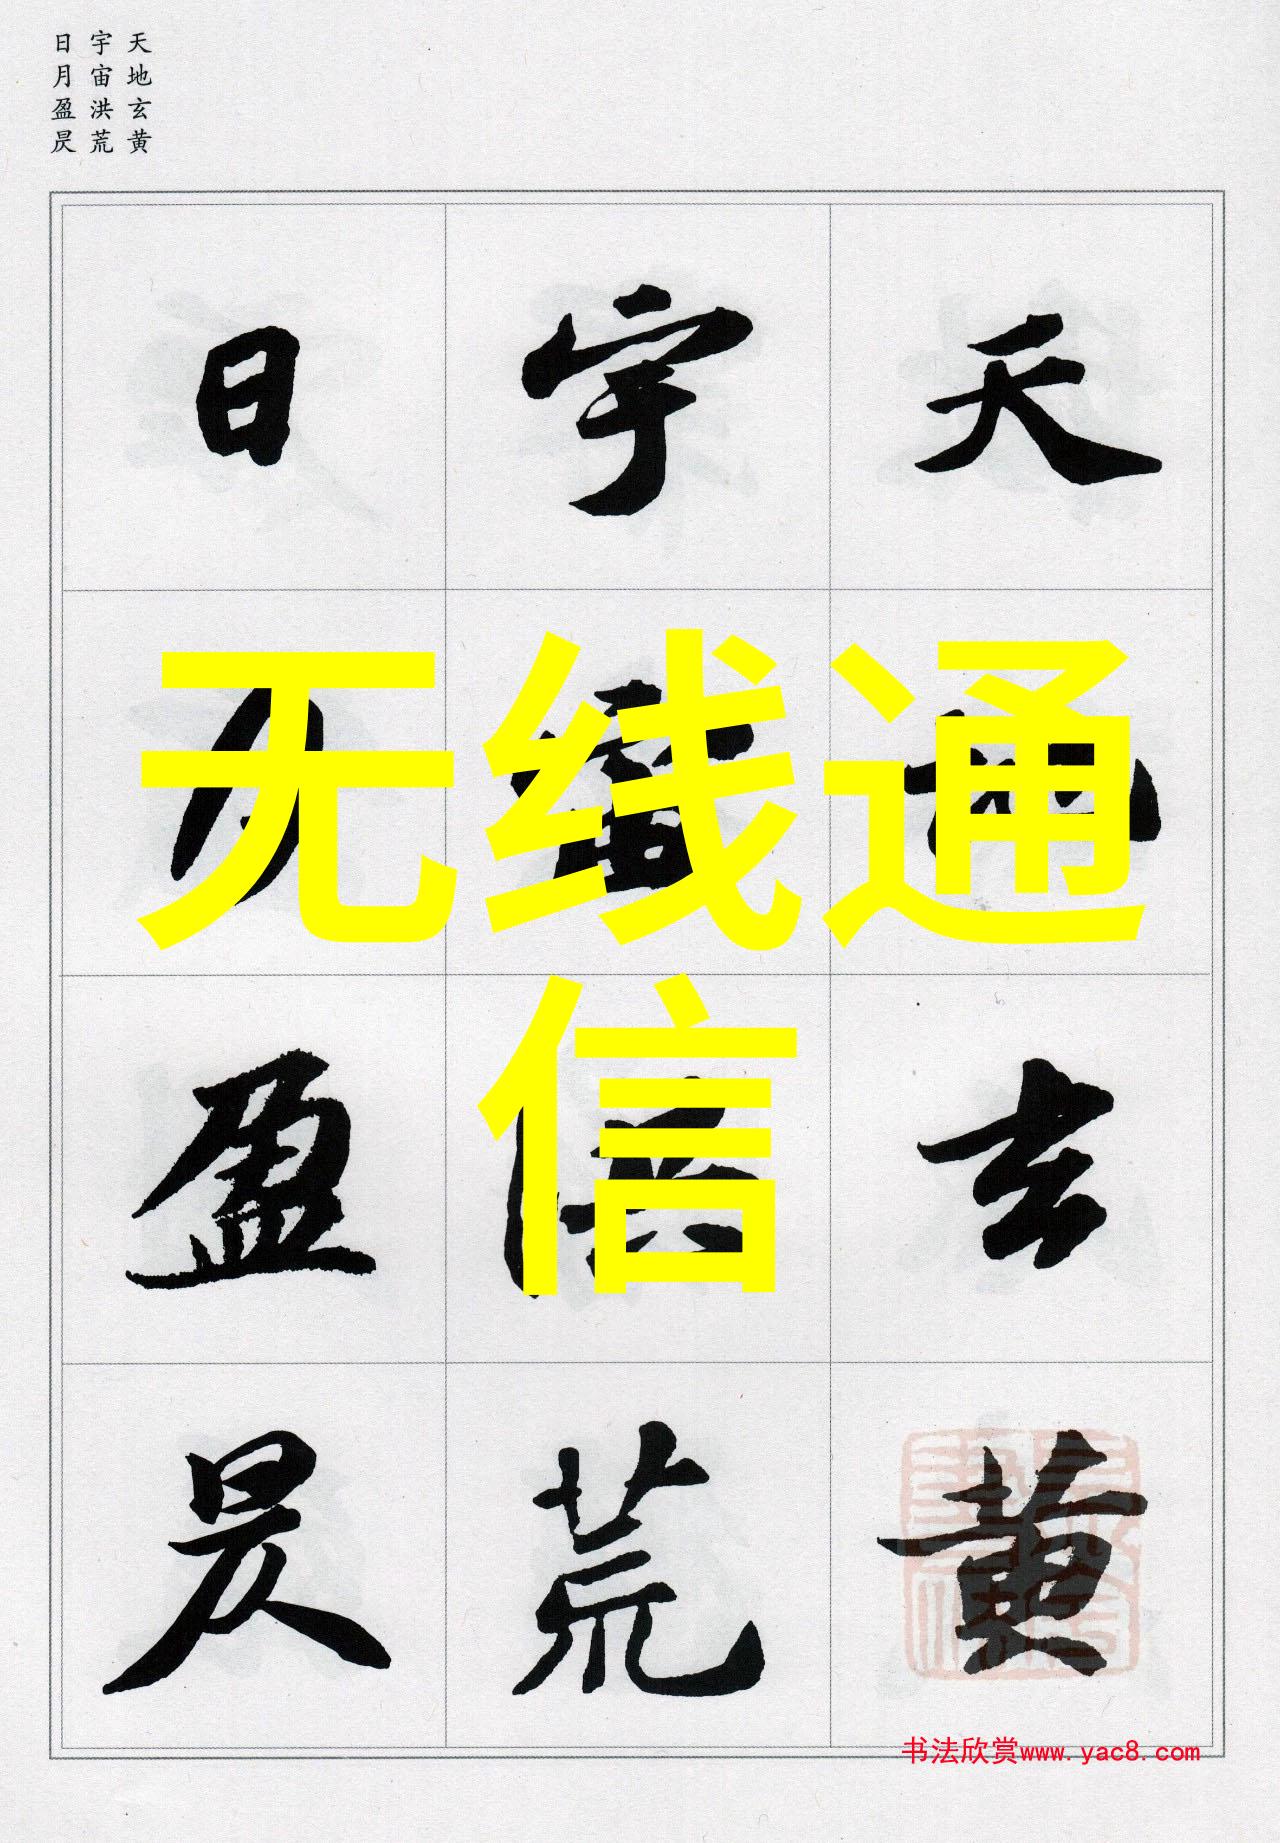 天地玄黄
宇宙洪荒
日月盈昃
天地玄黄
宇宙洪荒
日月盈昃
无线通
信
书法欣赏www.yac8.com